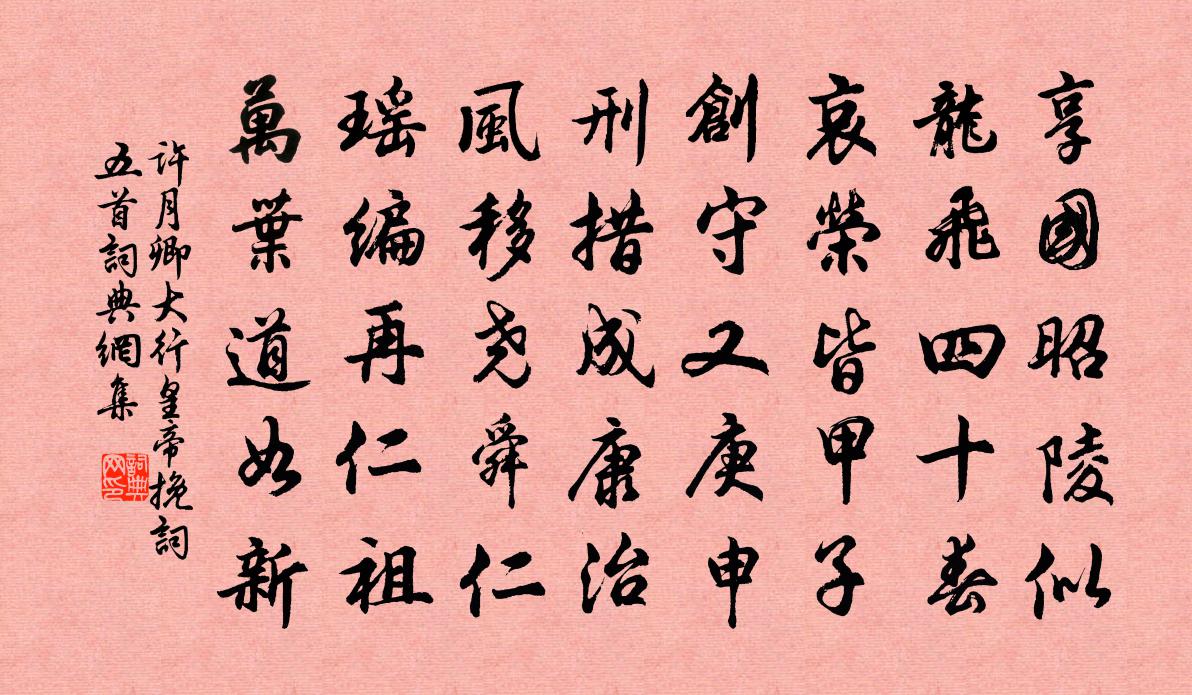 享國昭陵似
龍飛四十春
哀榮皆甲子
創守又庚申
刑措成康治
風移尧舜仁
瑶编再仁祖
萬葉道如新
許月卿大行皇帝挽詞
五首詞典網集
詞典网印